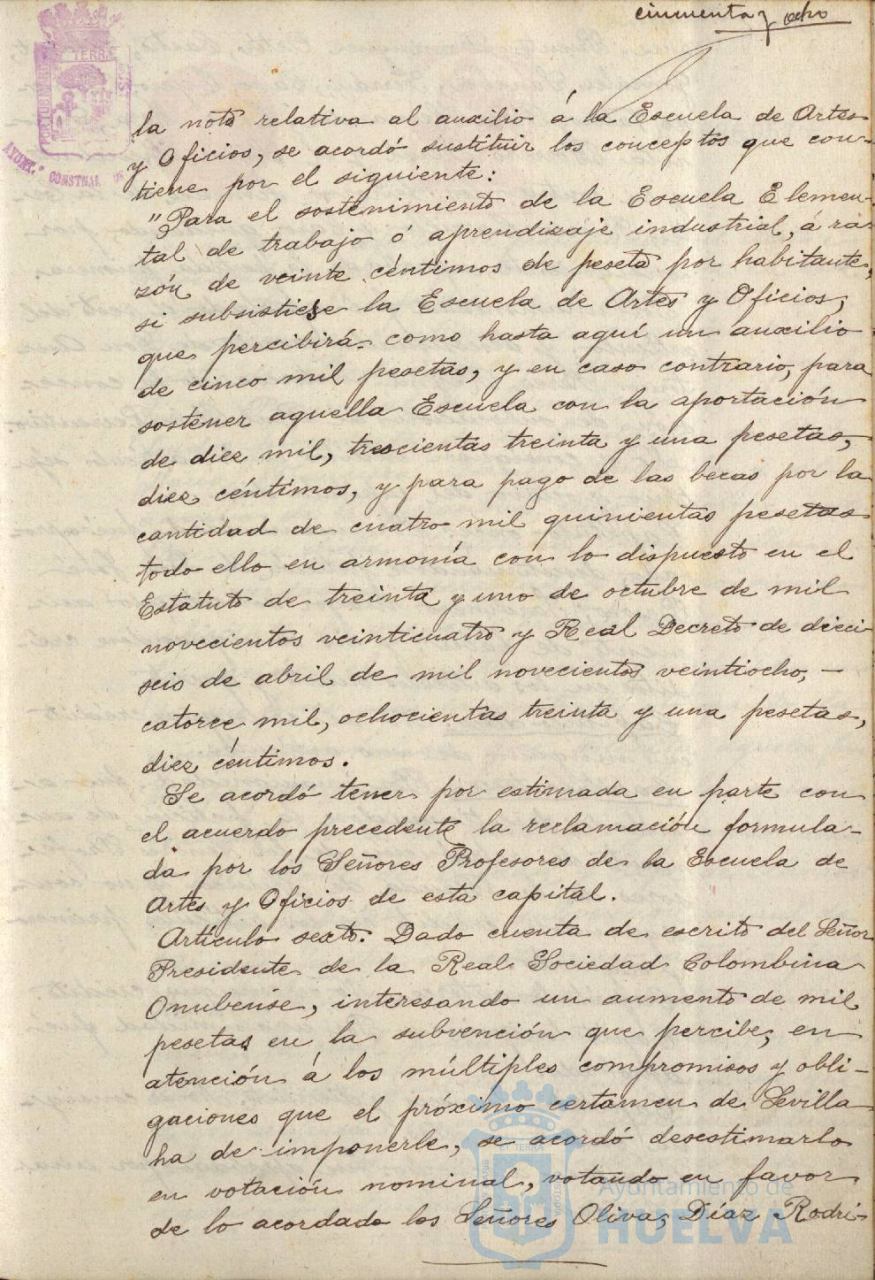 cincuenta y ocho
la nota relativa al auxilio á la Escuela de Artes
y Oficios, se acordó sustituir los conceptos que con-
tiene por el siguiente:
"Para el sostenimiento de la Escuela Elemen-
tal de trabajo ó aprendizaje industrial, á ra-
zón de veinte céntimos de peseta por habitante,
si subsistiese la Escuela de Artes y Oficios,
que percibirá como hasta aquí un auxilio
de cinco mil pesetas, y en caso contrario, para
sostener aquella Escuela con la aportación
de diez mil, trescientas treinta y una pesetas,
diez céntimos, y para pago de las becas por la
cantidad de cuatro mil quinientas pesetas
todo ello en armonía con lo dispuesto en el
Estatuto de treinta y uno de octubre de mil
novecientos veinticuatro y Real Decreto de dieci-
seis de abril de mil novecientos veintiocho, -
catorce mil, ochocientas treinta y una pesetas,
diez céntimos.
Se acordó tener por estimada en parte con
el acuerdo precedente la reclamación formula-
da por los Señores Profesores de la Escuela de
Artes y Oficios de esta capital.
Artículo sexto. Dado cuenta de escrito del Señor
Presidente de la Real Sociedad Colombina
Onubense, interesando un aumento de mil
pesetas en la subvención que percibe, en
atención á los múltiples compromisos y obli-
gaciones que el próximo certamen de Sevilla
ha de imponerle, se acordó desestimarlo
en votación nominal, votando en favor
de lo acordado los Señores Oliva, Díaz Rodri-
AYUNT.º CONSTNAL
Ayuntamiento de
HUELVA